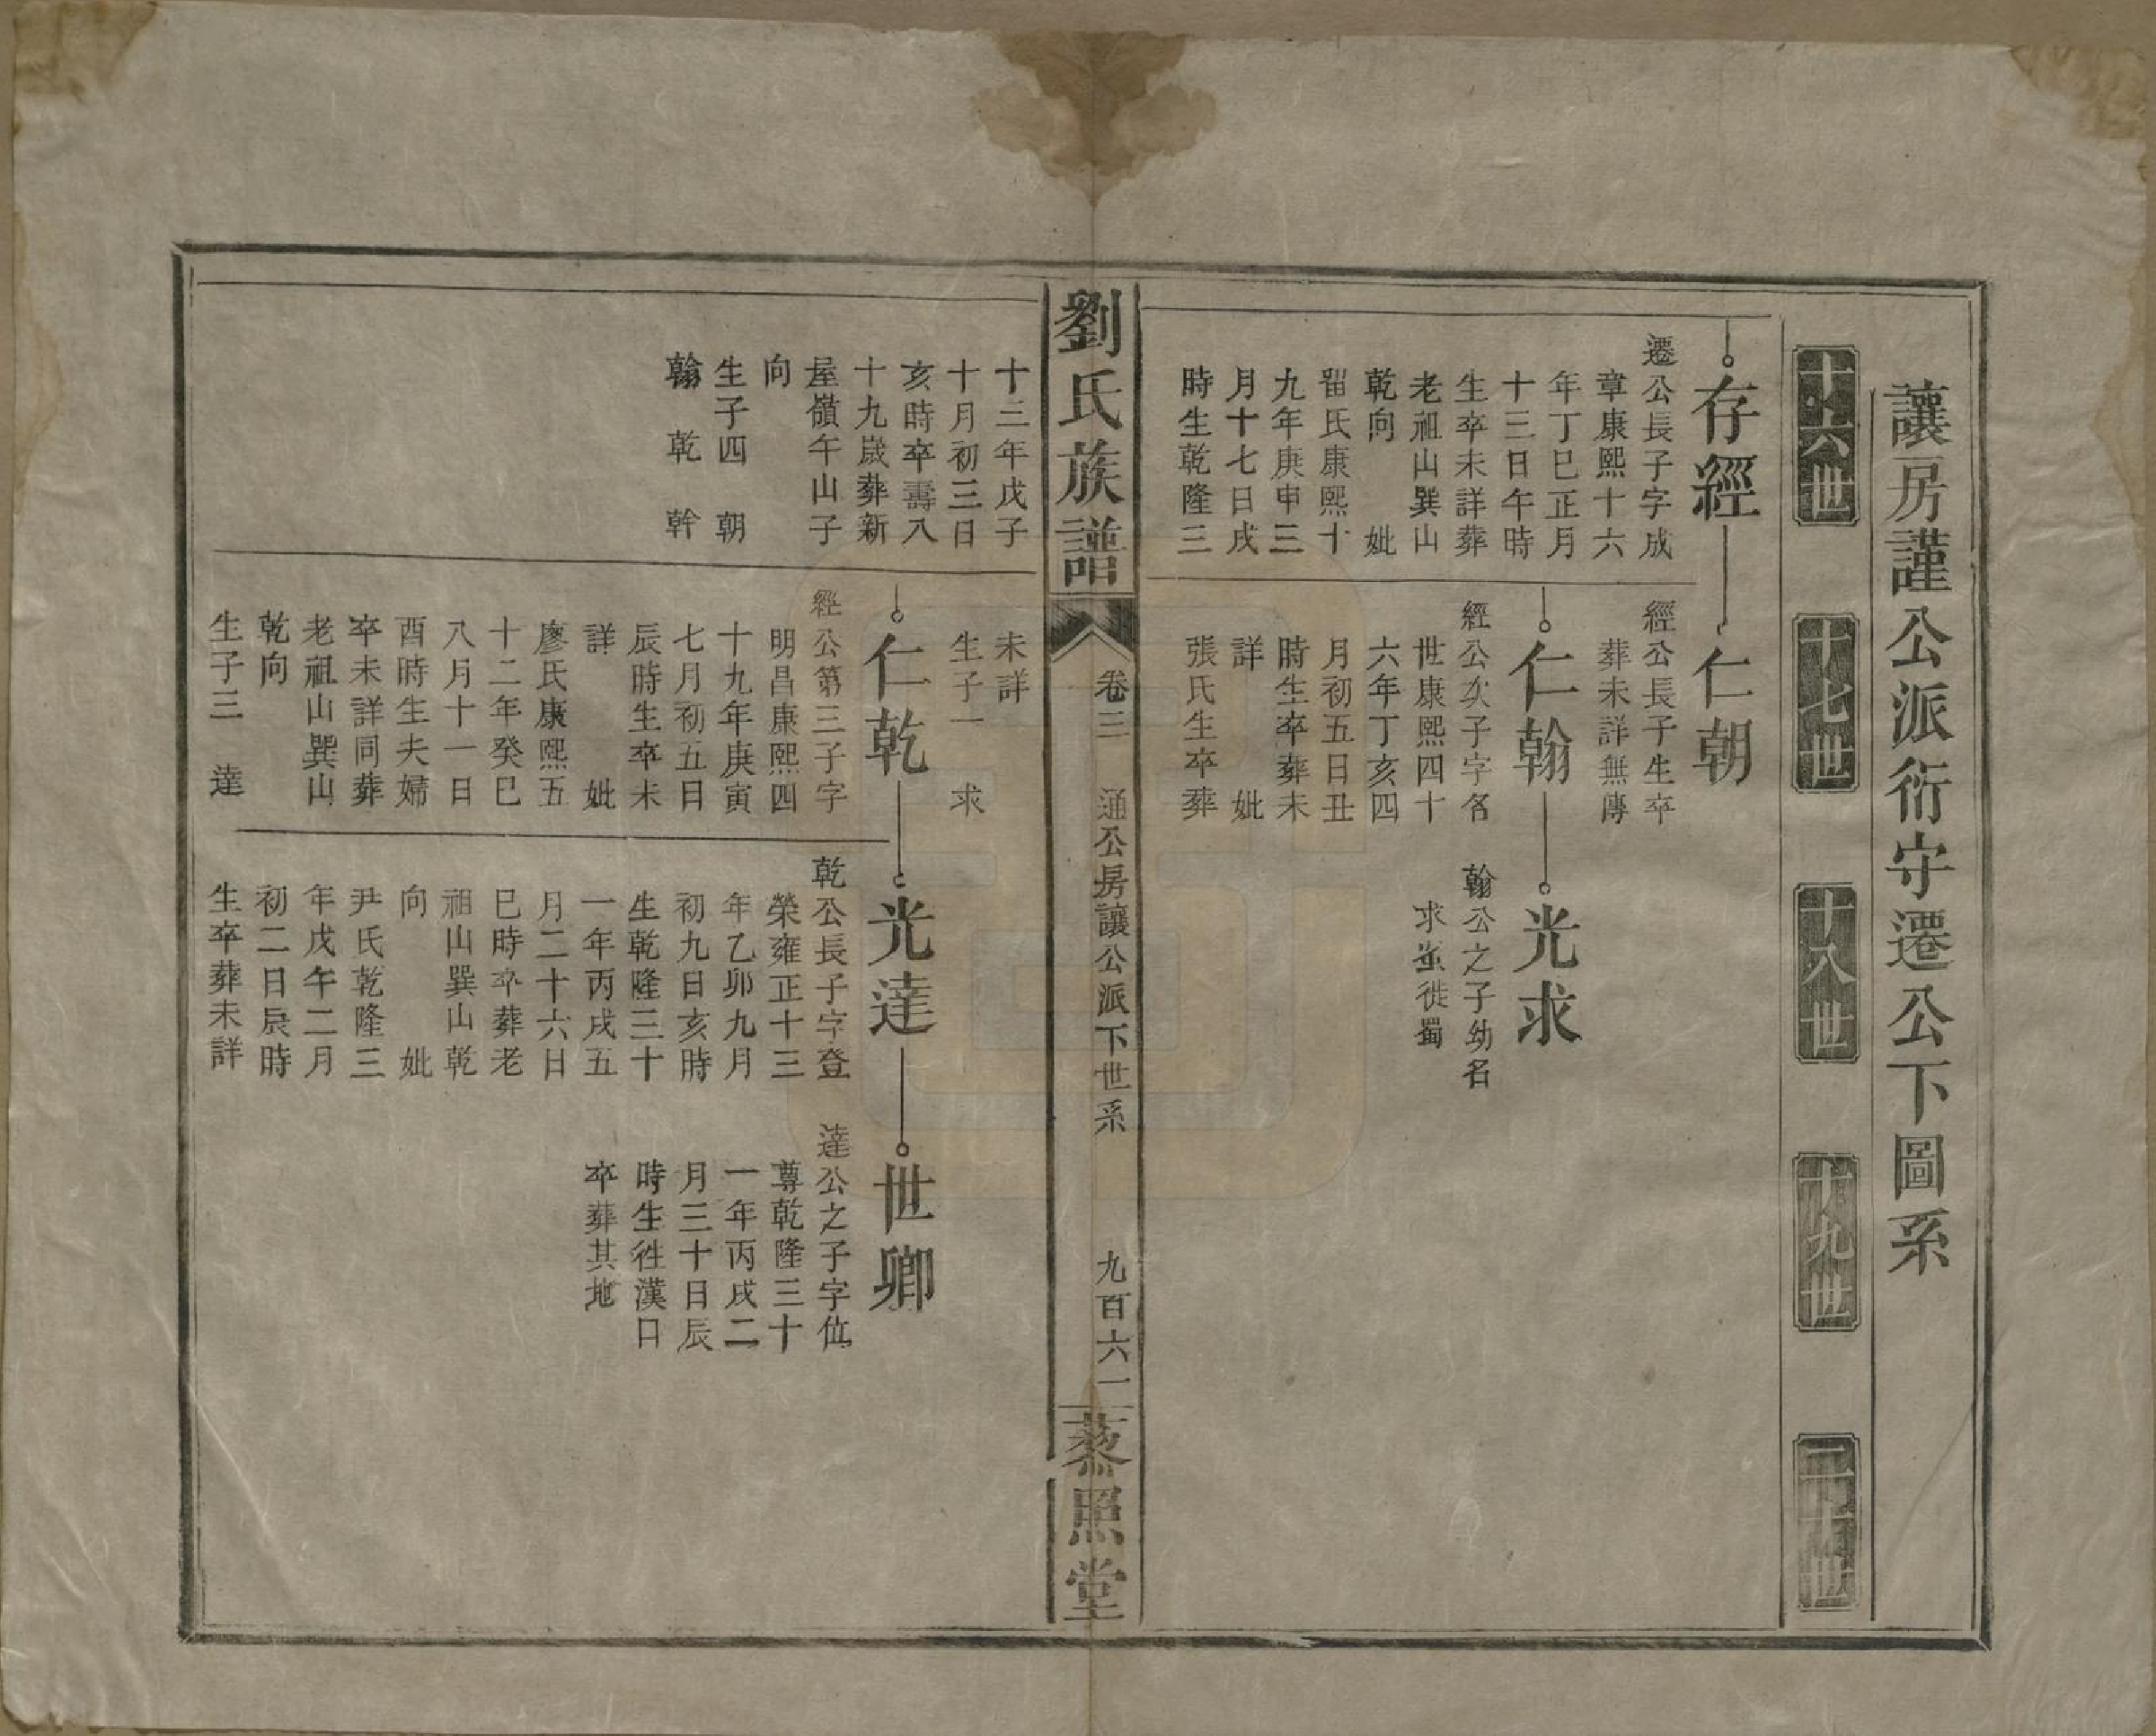 讓房謹公派衍守遷公下圖系
十六世
十七世
十八世
十九世
二十世
存經
遷公長子字成
章康熙十六
年丁巳正月
十三日午時
生卒未詳葬
老祖山巽山
乾向　妣
留氏康熙十
九年庚申三
月十七日戌
時生乾隆三
仁朝
經公長子生卒
葬未詳無傳
仁翰
經公次子字名
世康熙四十
六年丁亥四
月初五日丑
時生卒葬未
詳　妣
張氏生卒葬
光求
翰公之子幼名
求蚩徙蜀
劉氏族譜
卷三
通公房讓公派下世系
九百六一
蒸照堂
十三年戊子
十月初三日
亥時卒壽八
十九歲葬新
屋嶺午山子
向
生子四　朝
翰　乾　幹
未詳
生子一　求
仁乾
經公第三子字
明昌康熙四
十九年庚寅
七月初五日
辰時生卒未
詳　妣
廖氏康熙五
十二年癸巳
八月十一日
酉時生夫婦
卒未詳同葬
老祖山巽山
乾向
生子三　達
光達
乾公長子字登
榮雍正十三
年乙卯九月
初九日亥時
生乾隆三十
一年丙戌五
月二十六日
巳時卒葬老
祖山巽山乾
向　妣
尹氏乾隆三
年戊午二月
初二日辰時
生卒葬未詳
世卿
達公之子字位
尊乾隆三十
一年丙戌二
月三十日辰
時生徃漢口
卒葬其地